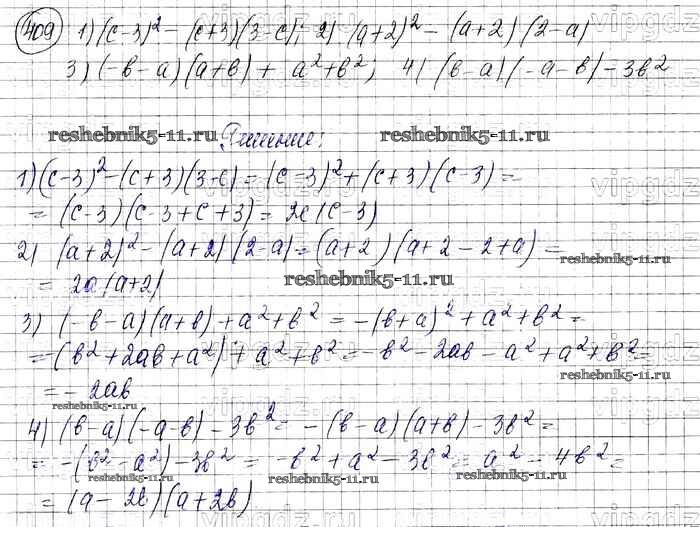 409 1) (c-3)² - (c+3)(3-c); 2) (a+2)² - (a+2)(2-a)
3) (-в-a)(a+в) + a²+в²; 4) (в-a)(-a-в) - 3в²
reshebnik5-11.ru Решение: reshebnik5-11.ru
1) (c-3)² - (c+3)(3-c) = (c-3)² + (c+3)(c-3) =
= (c-3)(c-3+c+3) = 2c(c-3)
2) (a+2)² - (a+2)(2-a) = (a+2)(a+2-2+a) =
reshebnik5-11.ru
= 2a(a+2) reshebnik5-11.ru
3) (-в-a)(a+в) + a²+в² = -(в+a)² + a²+в² =
= -(в²+2aв+a²) + a²+в² = -в²-2aв-a²+a²+в² =
reshebnik5-11.ru
= -2aв
reshebnik5-11.ru
4) (в-a)(-a-в) - 3в² = -(в-a)(a+в) - 3в² =
= -(в²-a²) - 3в² = -в²+a²-3в² = a²-4в² =
reshebnik5-11.ru reshebnik5-11.ru reshebnik5-11.ru
= (a-2в)(a+2в)
vipgdz